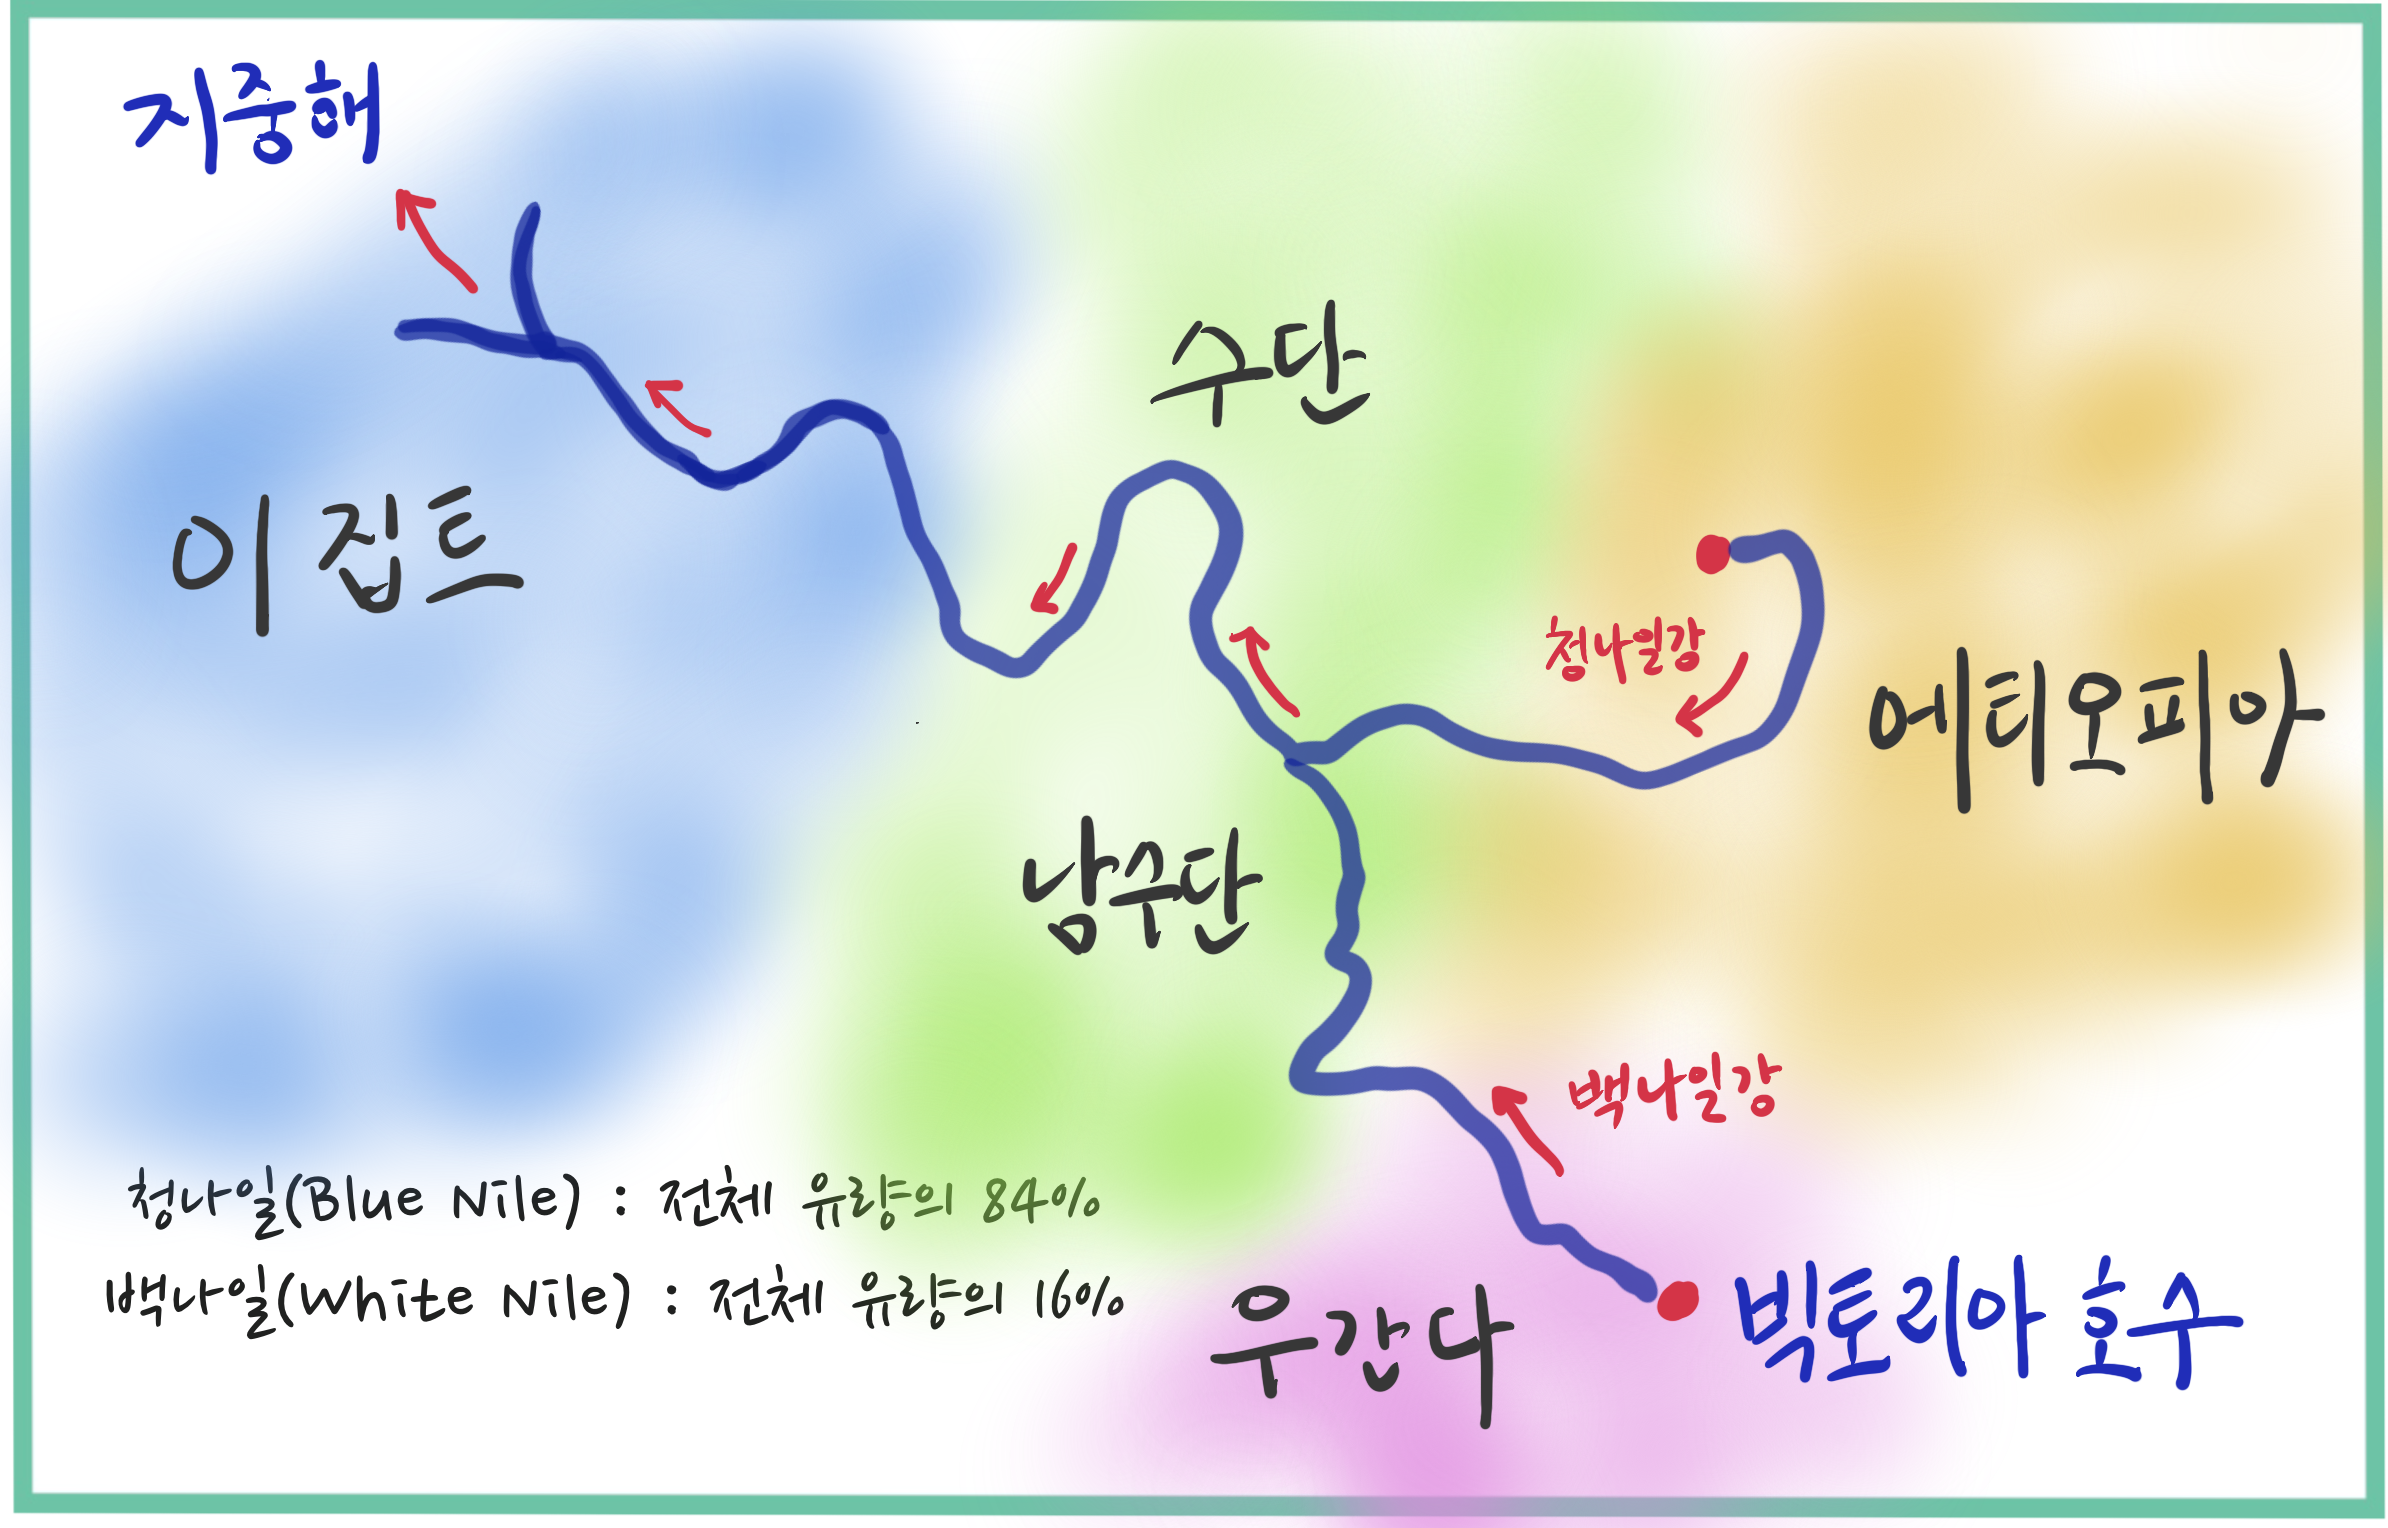 지중해
수단
이집트
청나일강
에티오피아
남수단
백나일강
청나일(Blue Nile) : 전체 유량의 84%
백나일(White Nile) : 전체 유량의 16%
우간다
빅토리아 호수